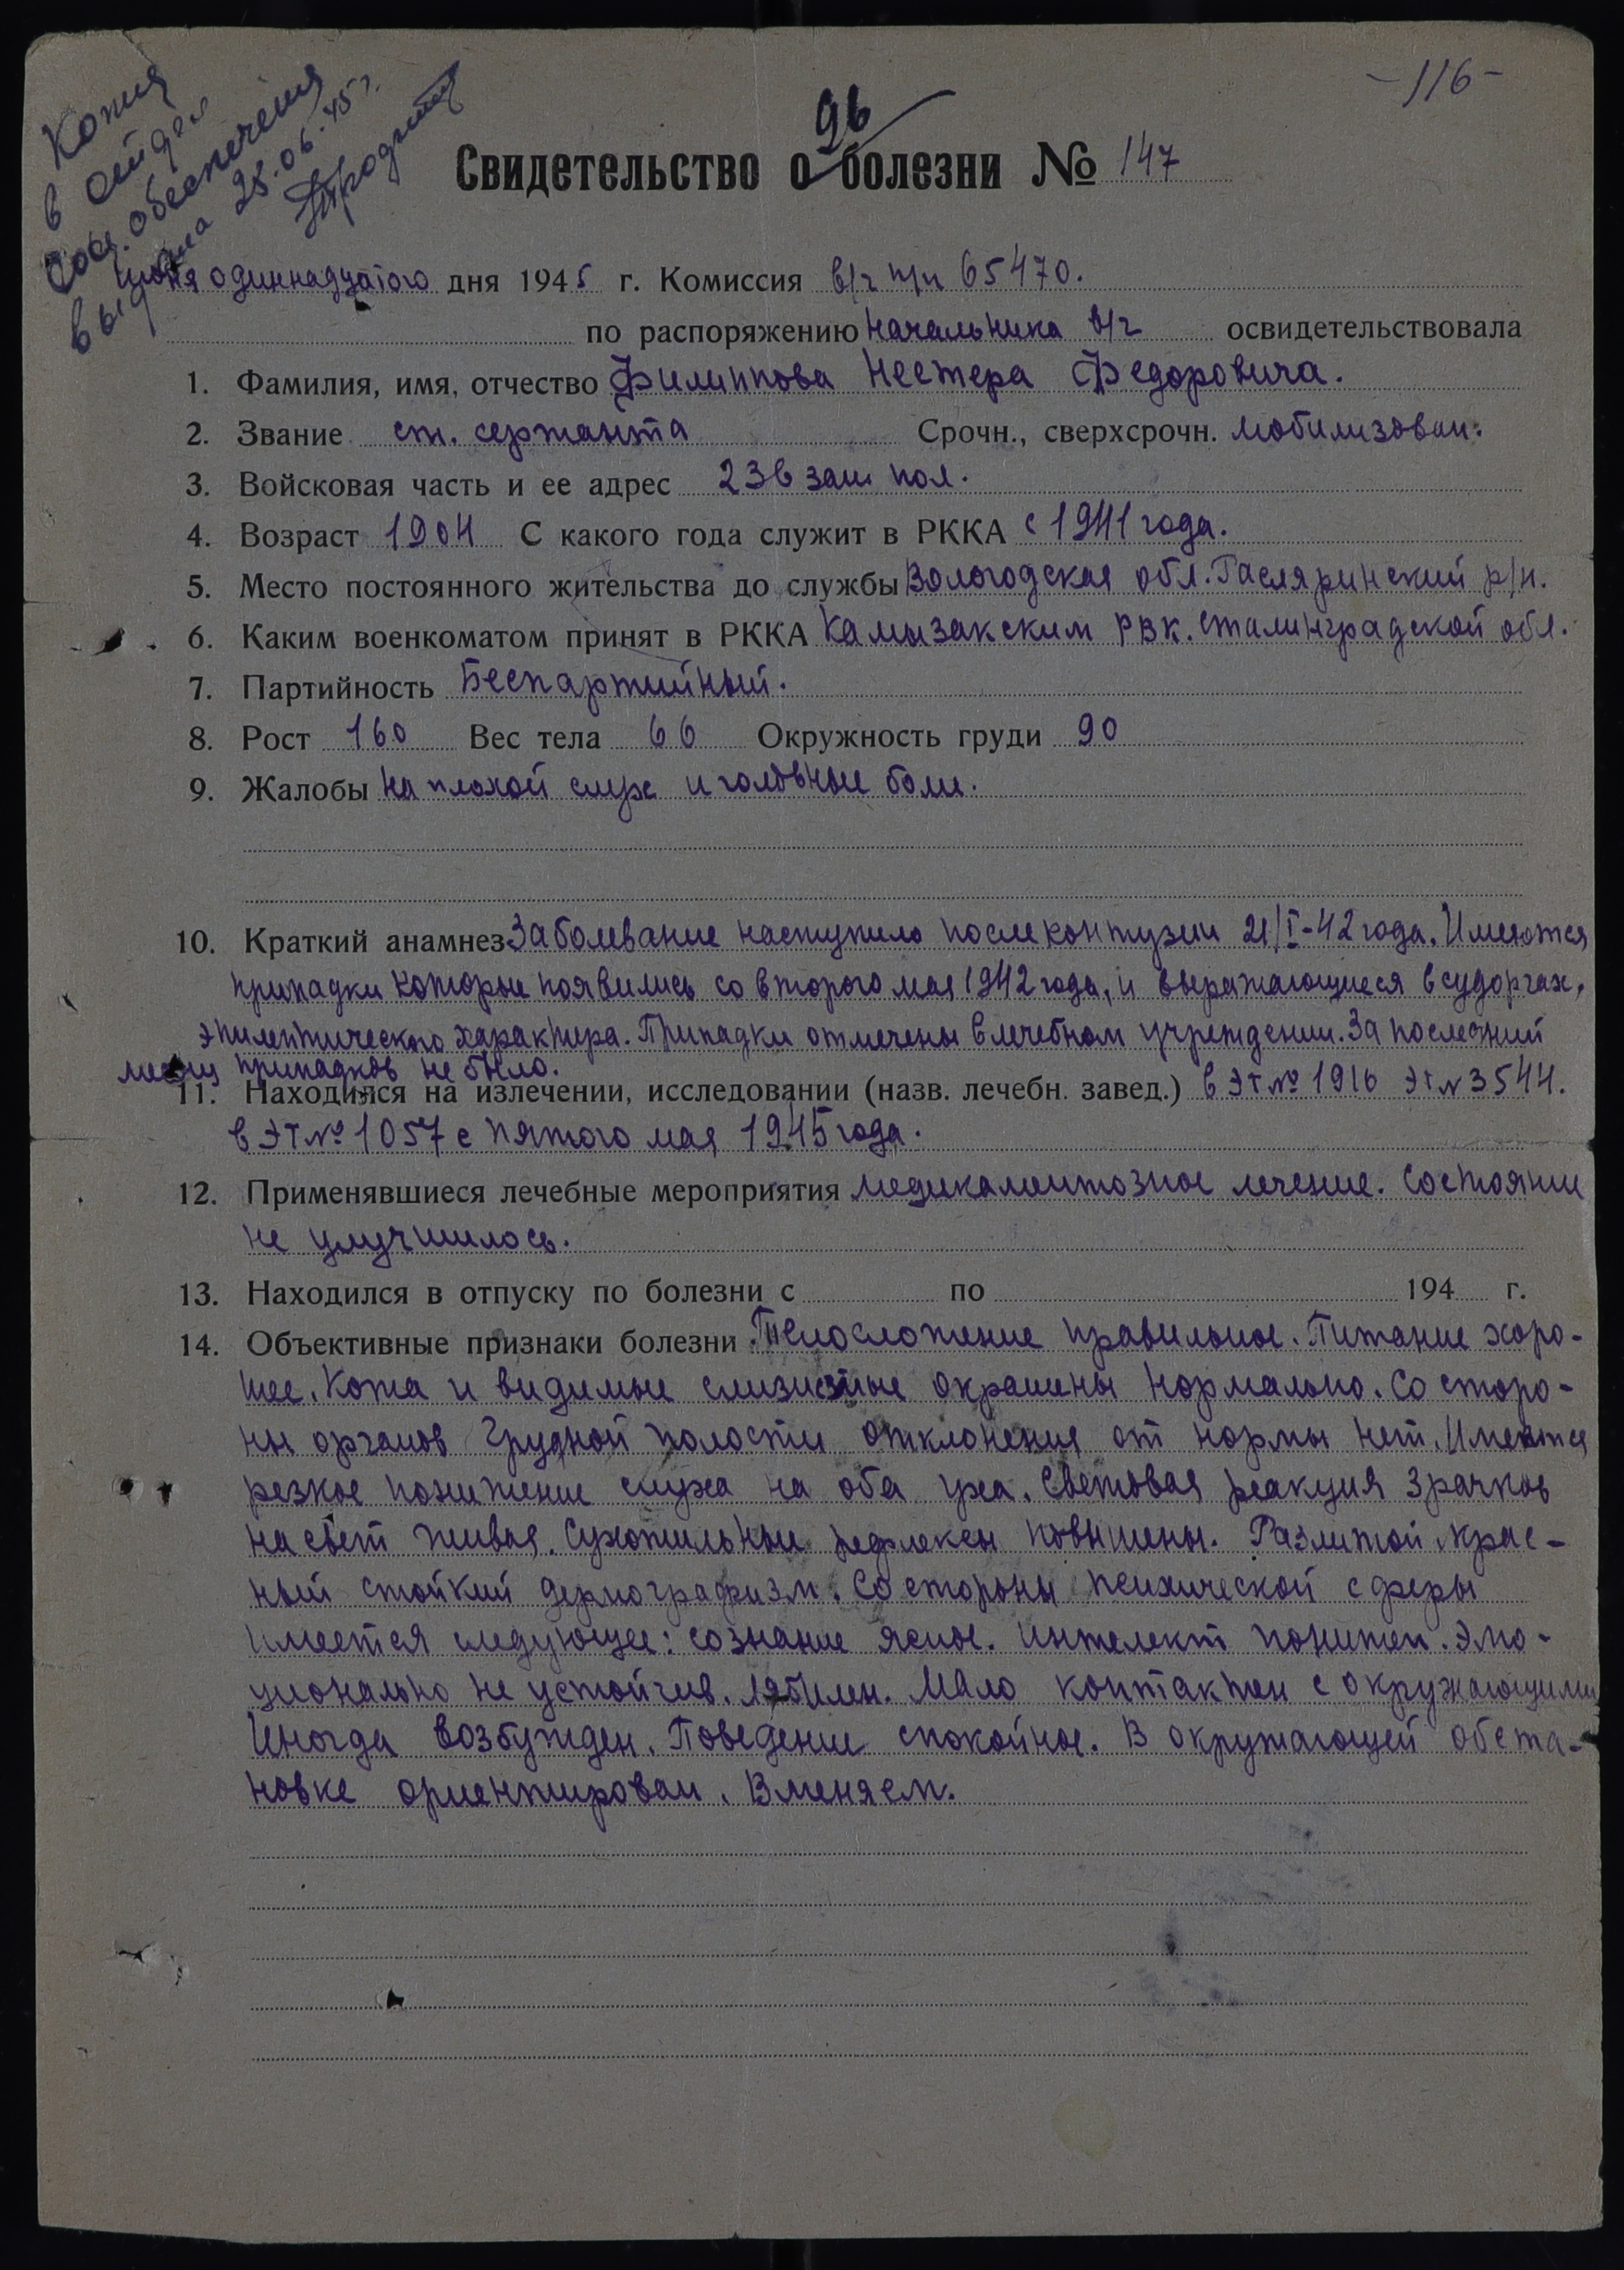 -116-
Копия
в отдел
соц. обеспечения
выдана 25.06.45 г.
96
Свидетельство о болезни № 147
июня одиннадцатого дня 1945 г. Комиссия в/ч п/п 65470.
по распоряжению начальника в/ч освидетельствовала
1. Фамилия, имя, отчество Филиппова Нестера Федоровича.
2. Звание ст. сержанта Срочн., сверхсрочн. мобилизован.
3. Войсковая часть и ее адрес 236 зап. пол.
4. Возраст 1904 С какого года служит в РККА с 1941 года.
5. Место постоянного жительства до службы Вологодская обл. р/н.
6. Каким военкоматом принят в РККА Камызакским РВК. Сталинградской обл.
7. Партийность Беспартийный.
8. Рост 160 Вес тела 66 Окружность груди 90
9. Жалобы на плохой слух и головные боли.
10. Краткий анамнез Заболевание наступило после контузии 21/I-42 года. Имеются
припадки которые появились со второго мая 1942 года, и выражающиеся в судоргах,
эпилептического характера. Припадки отмечены в лечебном учреждении. За последний
месяц припадков не было.
11. Находился на излечении, исследовании (назв. лечебн. завед.) в ЭГ № 1916 ЭГ № 3544.
в ЭГ № 1057 с пятого мая 1945 года.
12. Применявшиеся лечебные мероприятия медикаментозное лечение. Состояние
не улучшилось.
13. Находился в отпуску по болезни с по 194 г.
14. Объективные признаки болезни Телосложение правильное. Питание хоро-
шее. Кожа и видимые слизистые окрашены нормально. Со сторо-
ны органов грудной полости отклонения от нормы нет. Имеются
резкое понижение слуха на оба уха. Световая реакция зрачков
на свет живая. Сухожильные рефлексы повышены. Разлитой крас-
ный стойкий дермографизм. Со стороны психической сферы
имеется следующее: сознание ясное. Интелект понижен. Эмо-
ционально не устойчив. Лябилен. Мало контактен с окружающими
Иногда возбужден. Поведение спокойное. В окружающей обста-
новке ориентирован. Вменяем.